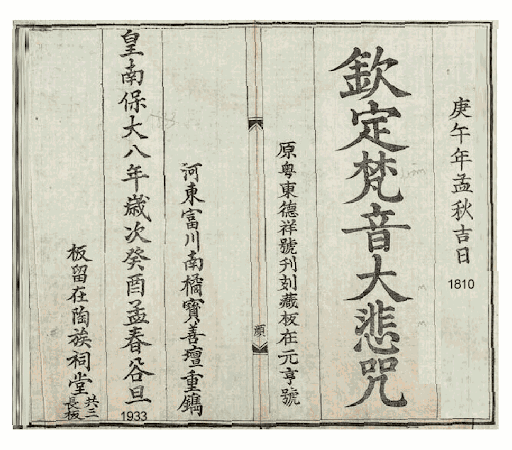 庚午年孟秋吉日
1810
欽定梵音大悲咒
原粤東德祥號刊刻藏板在元亨號
河東富川南橘寶善壇重鐫
皇南保大八年歲次癸酉孟春谷旦
1933
板留在陶族祠堂
共三
長板